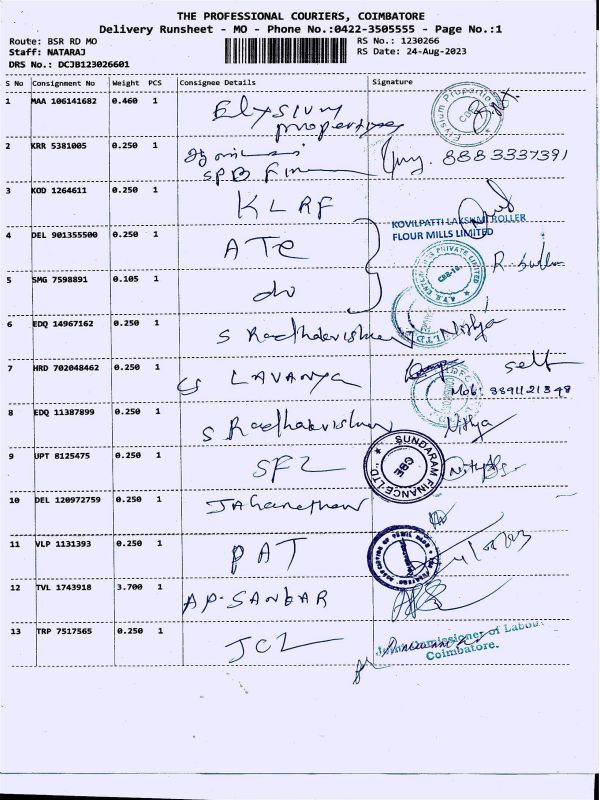 THE PROFESSIONAL COURIERS, COIMBATORE
Delivery Runsheet - MO - Phone No.:0422-3505555 - Page No.:1
Route: BSR RD MO RS No.: 1230266
Staff: NATARAJ RS Date: 24-Aug-2023
DRS No.: DCJB123026601
S No Consignment No Weight PCS Consignee Details Signature
1 MAA 106141682 0.460 1 Elysium
properties
Elysium Properties
2 KRR 5381005 0.250 1
SPB 8883337391
3 KOD 1264611 0.250 1 KLRF
KOVILPATTI LAKSHMI ROLLER
FLOUR MILLS LIMITED
4 DEL 901355500 0.250 1 ATE
PRIVATE LIMITED
5 SMG 7598891 0.105 1 do
6 EDQ 14967162 0.250 1 S Radhakrishnan Nithya
7 HRD 702048462 0.250 1 LAVANYA self
Mob:
8 EDQ 11387899 0.250 1 S Radhakrishnan Nithya
9 UPT 8125475 0.250 1 SFL
SUNDARAM FINANCE LTD.
CBE
10 DEL 120972759 0.250 1
11 VLP 1131393 0.250 1 PAT
12 TVL 1743918 3.700 1 AP-SANKAR
13 TRP 7517565 0.250 1 JCL
Joint Commissioner of Labour
Coimbatore.